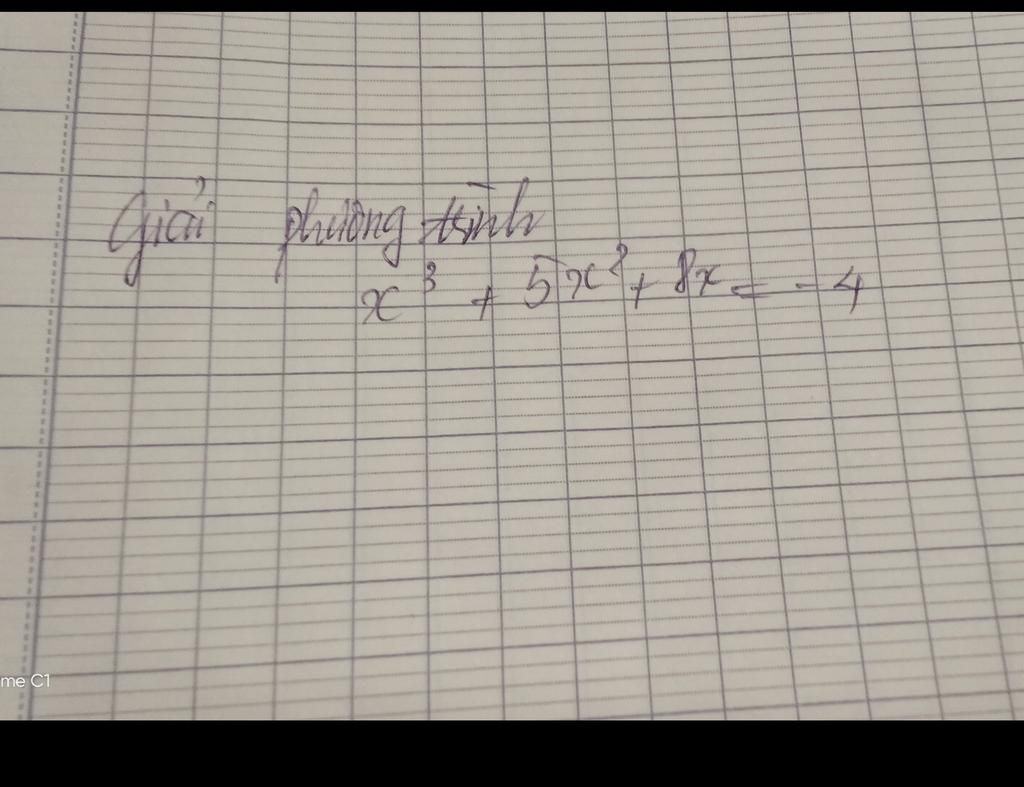 Giải phương trình
x³ + 5x² + 8x = - 4
me C1